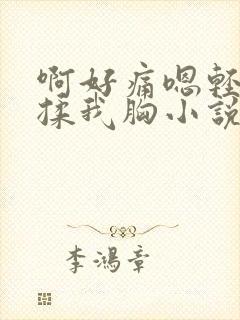 啊好痛嗯轻
揉我胸小説
李鴻章